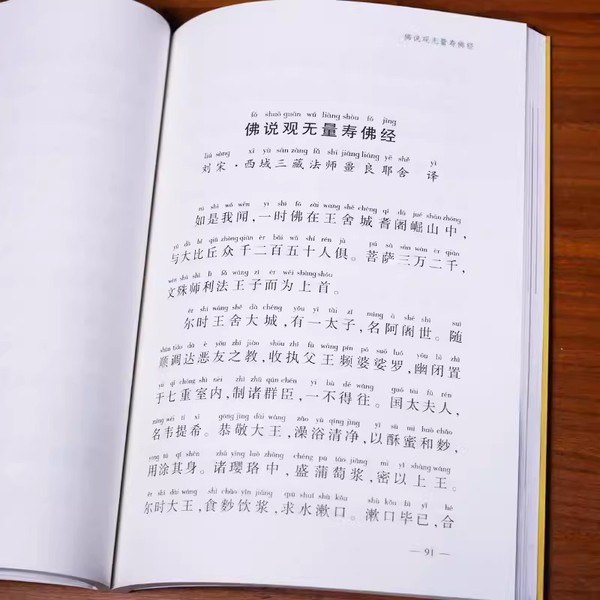 佛说观无量寿佛经
fó shuō guān wú liàng shòu fó jīng
佛说观无量寿佛经
liú sòng xī yù sān zàng fǎ shī jiāng liáng yē shě yì
刘宋·西域三藏法师畺良耶舍 译
rú shì wǒ wén yì shí fó zài wáng shè chéng qí dū jué shān zhōng
如是我闻,一时佛在王舍城耆阇崛山中,
yǔ dà bǐ qiū zhòng qiān èr bǎi wǔ shí rén jù pú sà sān wàn èr qiān
与大比丘众千二百五十人俱。菩萨三万二千,
wén shū shī lì fǎ wáng zǐ ér wéi shàng shǒu
文殊师利法王子而为上首。
ěr shí wáng shè dà chéng yǒu yī tài zǐ míng ā shé shì suí
尔时王舍大城,有一太子,名阿阇世。随
shùn tiáo dá è yǒu zhī jiào shōu zhí fù wáng pín pó suō luó yōu bì zhì
顺调达恶友之教,收执父王频婆娑罗,幽闭置
yú qī chóng shì nèi zhì zhū qún chén yī bù dé wǎng guó tài fū rén
于七重室内,制诸群臣,一不得往。国太夫人,
míng wéi tí xī gōng jìng dài wáng zǎo yù qīng jìng yǐ sū mì huò chǎo
名韦提希。恭敬大王,澡浴清净,以酥蜜和麨,
yòng tú qí shēn zhū yīng luò zhōng chéng pú táo jiāng mì yǐ shàng wáng
用涂其身。诸璎珞中,盛蒲萄浆,密以上王。
ěr shí dài wáng shí chǎo yǐn jiāng qiú shuǐ shù kǒu shù kǒu bì yǐ hé
尔时大王,食麨饮浆,求水漱口。漱口毕已,合
— 91 —